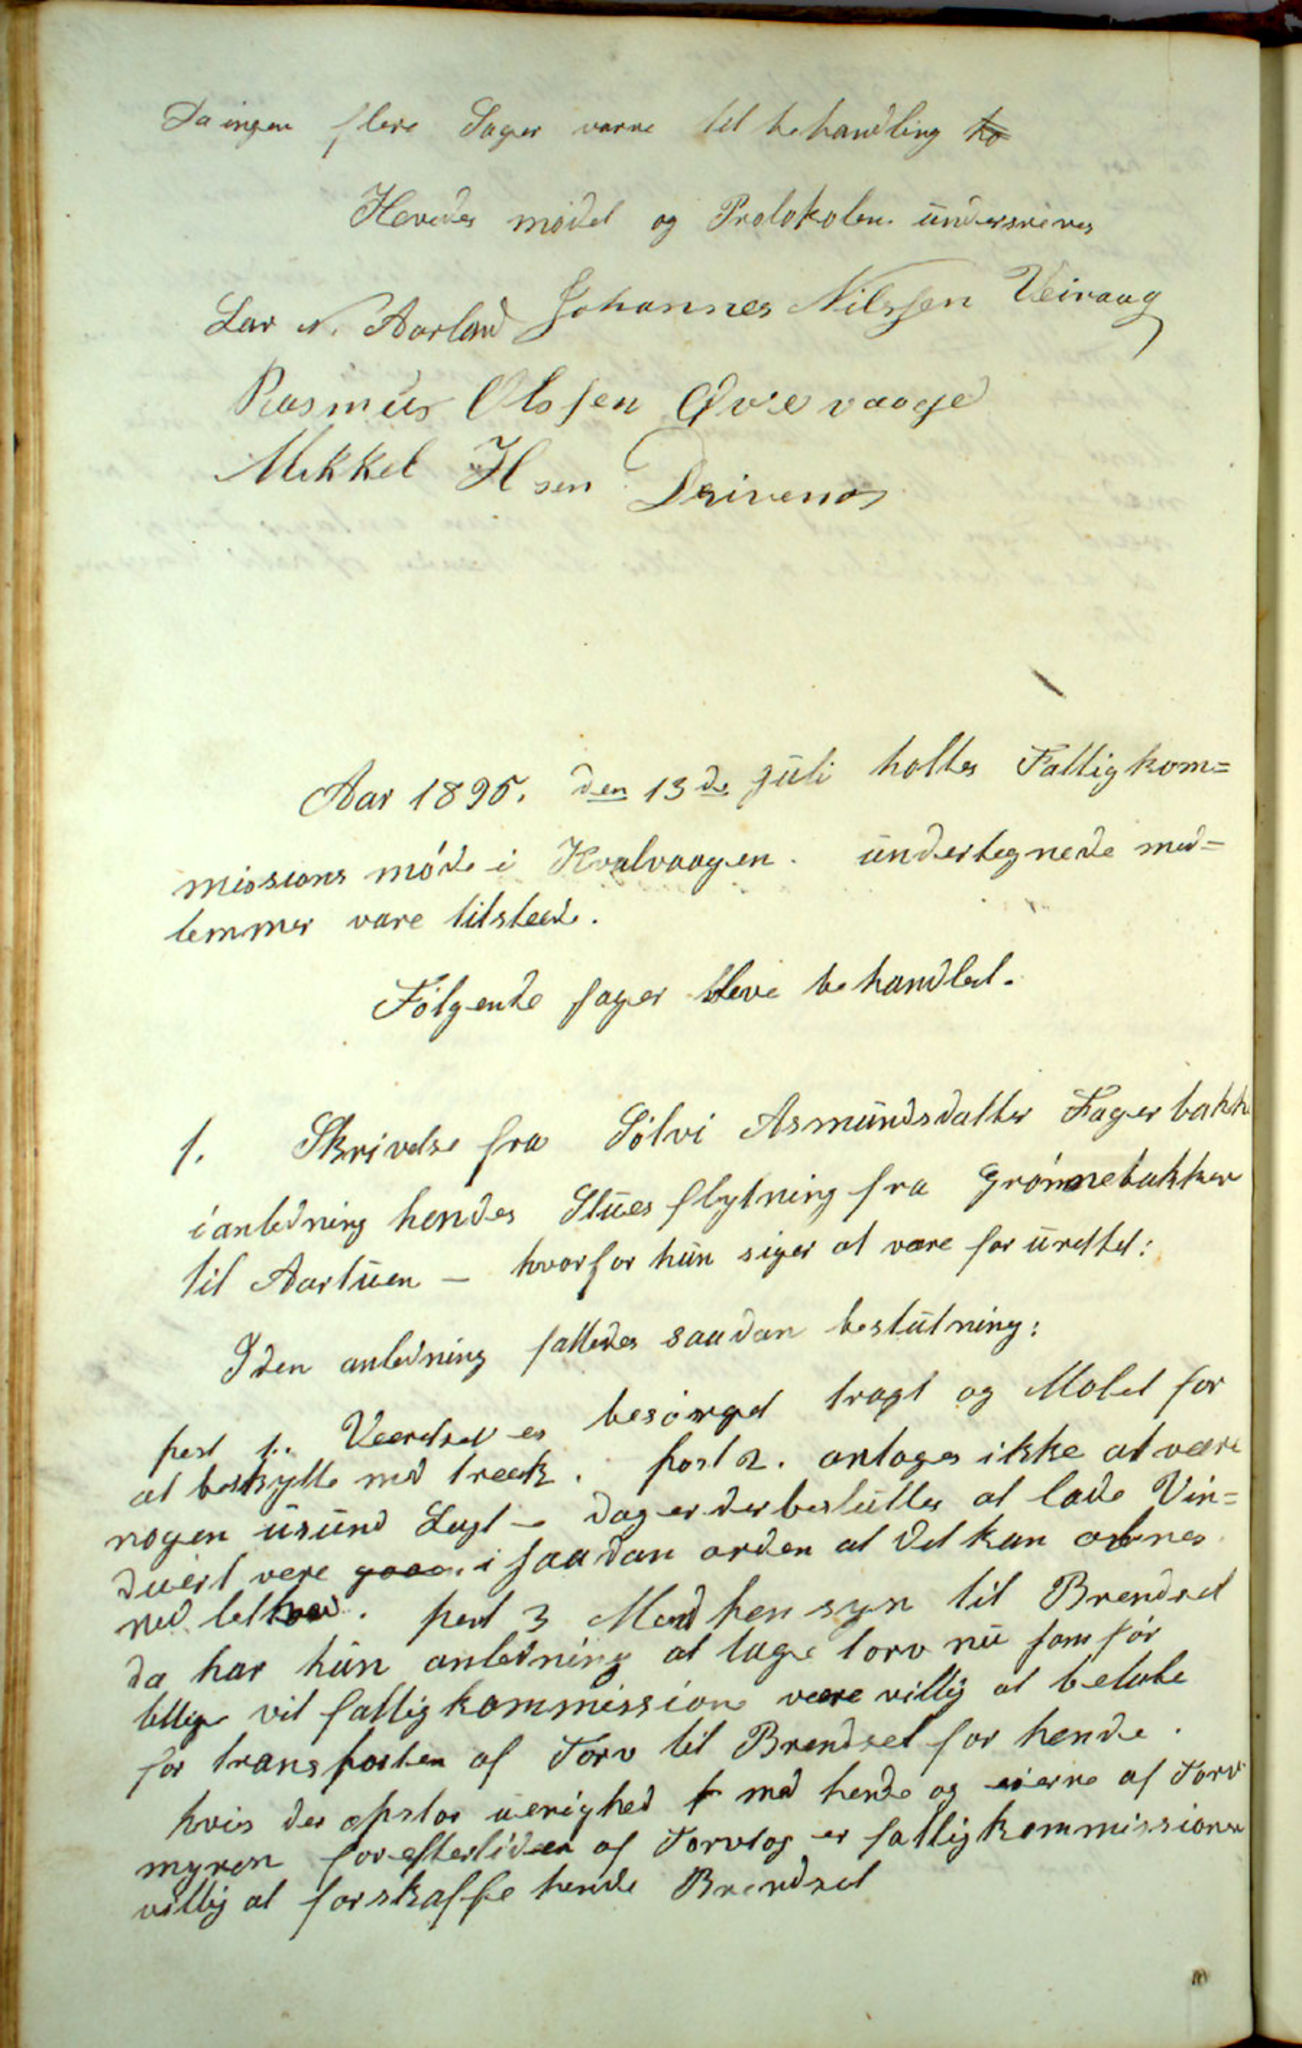 Da ingen flere Sager varne til behandling ho
Hevedes mødet og Protokolen undersrives
Lar N. Aarland Johannes Nilssen Veivaag
Rasmus Olssen Øvrevaage
Mikkel Hsen Drivenes
Aar 1895. den 13de Juli holtes Fattigkom=
missions møde i Kvalvaagen. undertegnede med=
lemmer vare tilstede.
Følgende sager bleve behandlet.
1. Skrivelse fra Sølvi Asmundsdatter Fagerbakk
i anledning hendes Stues flytning fra Grønnebakken
til Aartuen – hvorfor hun siger at være for urettet:
I den anledning fattedes saadan beslutning:
post 1. Værelset er besørget tragt og Malet for
at beskytte mod træk. post 2. antages ikke at være
nogen usund Lugt – dog er der besluttes at lade Vin=
duert være i saadan orden at det kan aabnes
ved. post 3 Med hensyn til Brendsel
da har hun anledning at tage torv nu som før
tillige vil fattigkommission være villig at betale
for transporten af Torv til Brendsel for hende.
hvis der opstor uenighed med hende og eierne af Torv
myren for eftertiden af Torvtag er fattigkommissionen
villig at forskaffe hende Brendsel